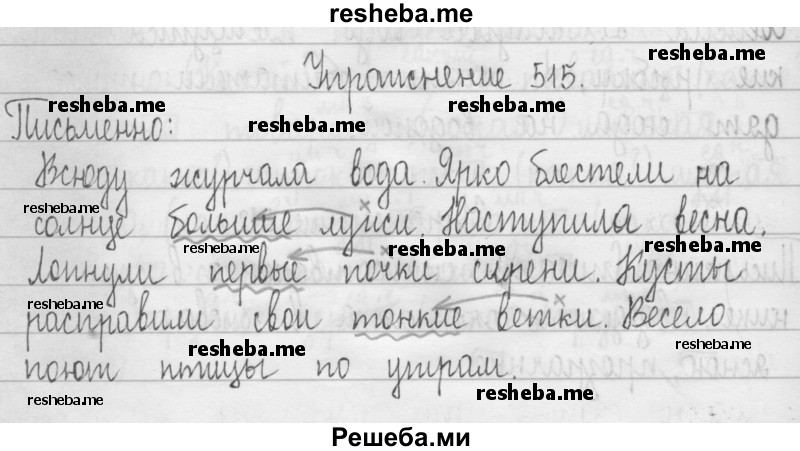 resheba.me
resheba.me
Упражнение 515.
resheba.me resheba.me
resheba.me
Письменно:
Всюду журчала вода. Ярко блестели на
resheba.me
солнце большие лужи. Наступила весна.
resheba.me resheba.me resheba.me
Лопнули первые почки сирени. Кусты
resheba.me
расправили свои тонкие ветки. Весело
resheba.me resheba.me
поют птицы по утрам.
resheba.me resheba.me
Решеба.ми